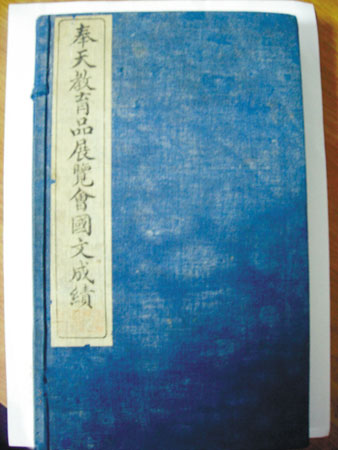 奉天教育品展覽會國文成績